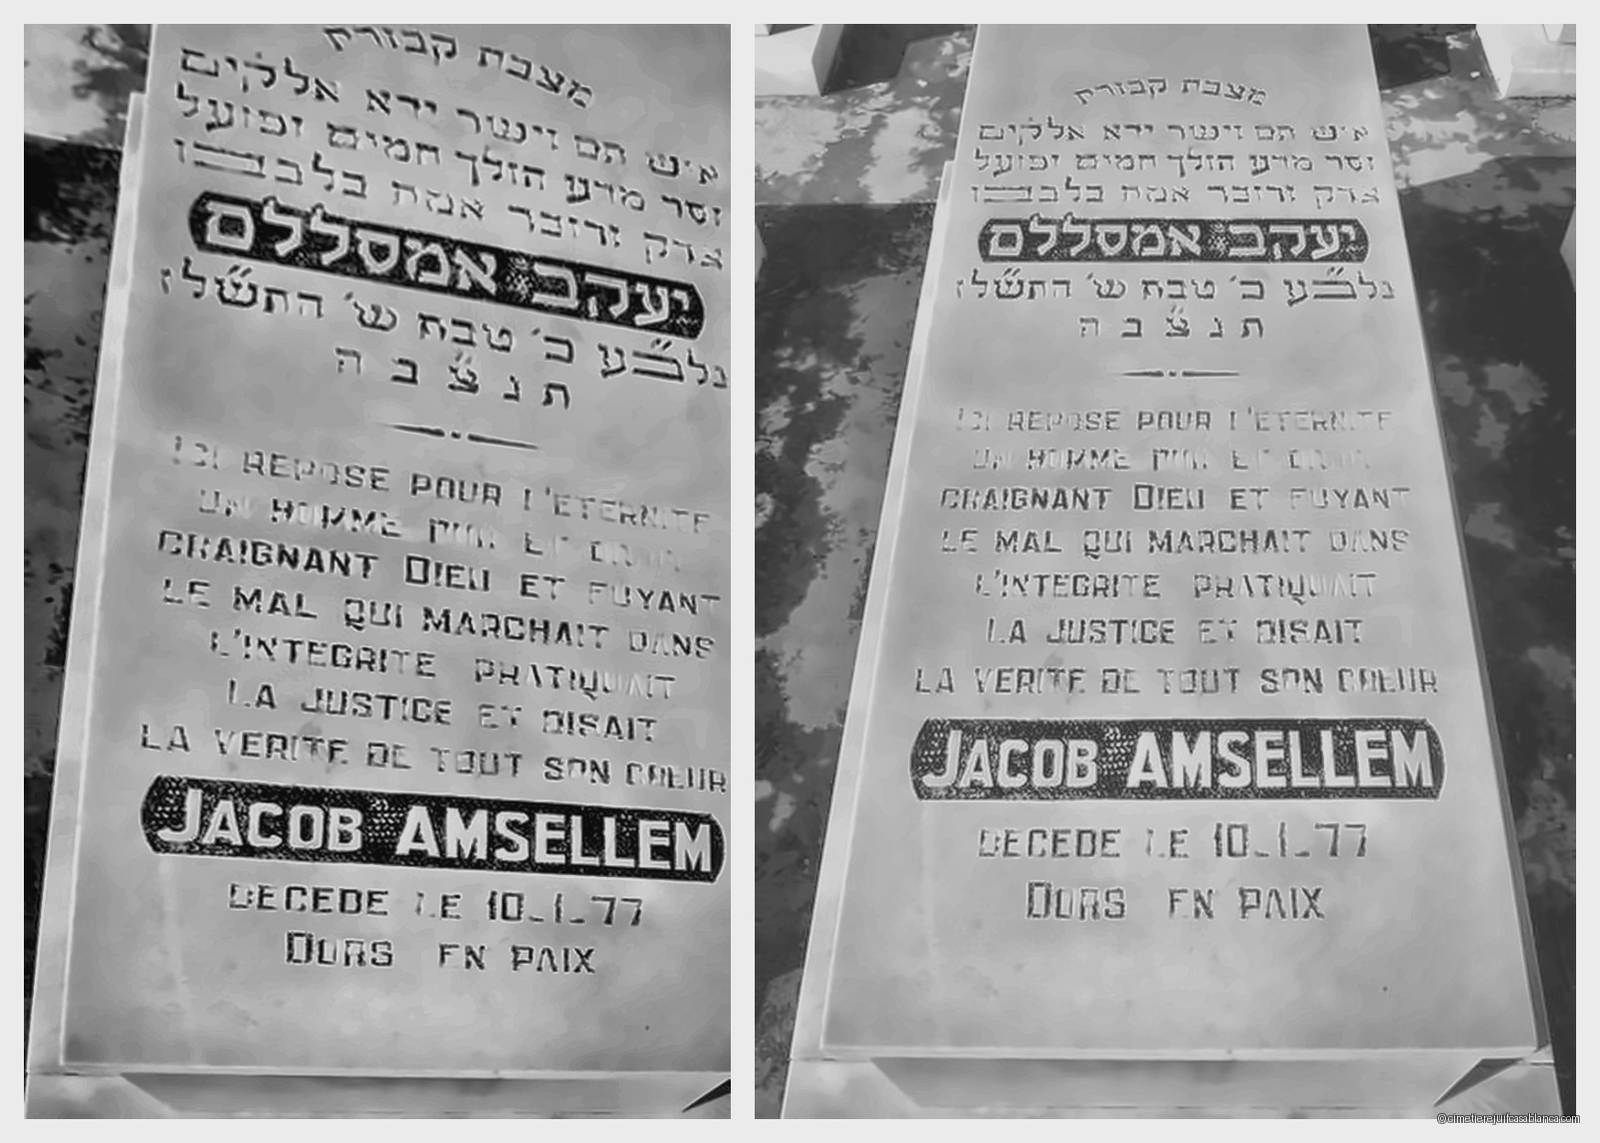 מצבת קבורת
איש תם וישר ירא אלקים
וסר מרע הולך תמים ופועל
צדק ודובר אמת בלבבו
יעקב אמסללם
נלב״ע כ׳ טבת ש׳ התש״לז
ת נ צ״ ב ה
ICI REPOSE POUR L'ETERNITE
UN HOMME ET
CRAIGNANT DIEU ET FUYANT
LE MAL QUI MARCHAIT DANS
L'INTEGRITE PRATIQUAIT
LA JUSTICE ET DISAIT
LA VERITE DE TOUT SON COEUR
JACOB AMSELLEM
DECEDE LE 10_1_77
DORS EN PAIX
מצבת קבורת
איש תם וישר ירא אלקים
וסר מרע הולך תמים ופועל
צדק ודובר אמת בלבבו
יעקב אמסללם
נלב״ע כ׳ טבת ש׳ התש״לז
ת נ צ״ ב ה
ICI REPOSE POUR L'ETERNITE
UN HOMME ET
CRAIGNANT DIEU ET FUYANT
LE MAL QUI MARCHAIT DANS
L'INTEGRITE PRATIQUAIT
LA JUSTICE ET DISAIT
LA VERITE DE TOUT SON COEUR
JACOB AMSELLEM
DECEDE LE 10_1_77
DORS EN PAIX
©cimetierejuifcasablanca.com